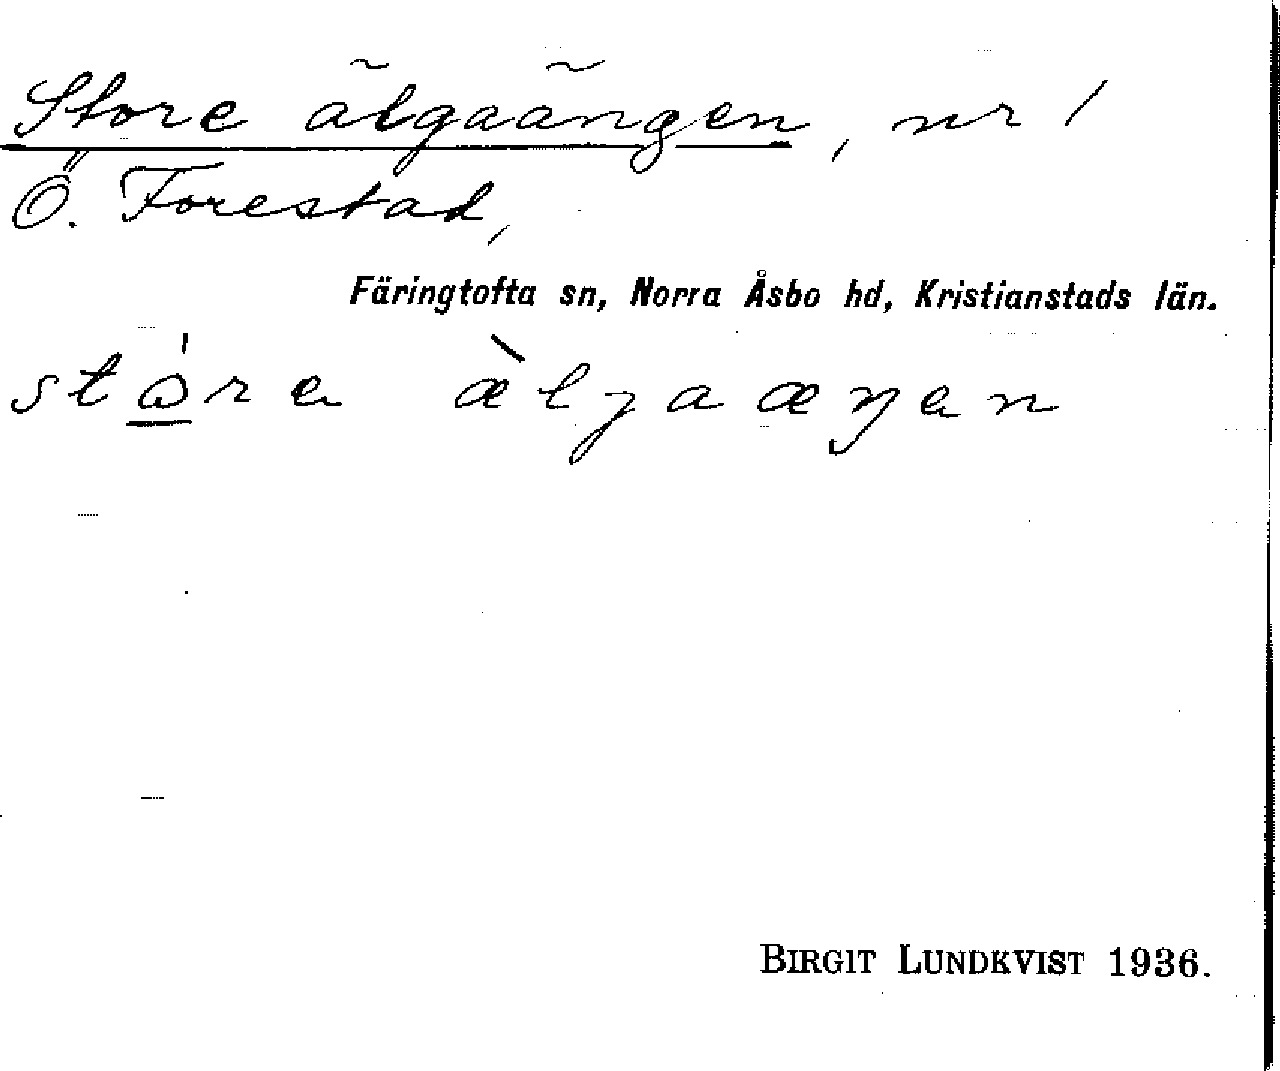 Store älgaängen, nr 1
Ö. Forestad,
Färingtofta sn, Norra Åsbo hd, Kristianstads län.
stɷ̲́rə æ̀ljaæŋən
BIRGIT LUNDKVIST 1936.